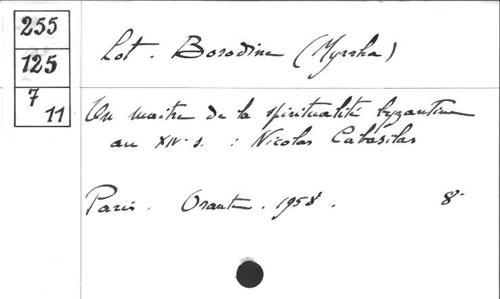 255
125
7
11
Lot. Borodine (Myrrha)
Un maitre de la spiritualité byzantine
au XIV s. : Nicolas Cabasilas
Paris. Orante. 1958. 8°